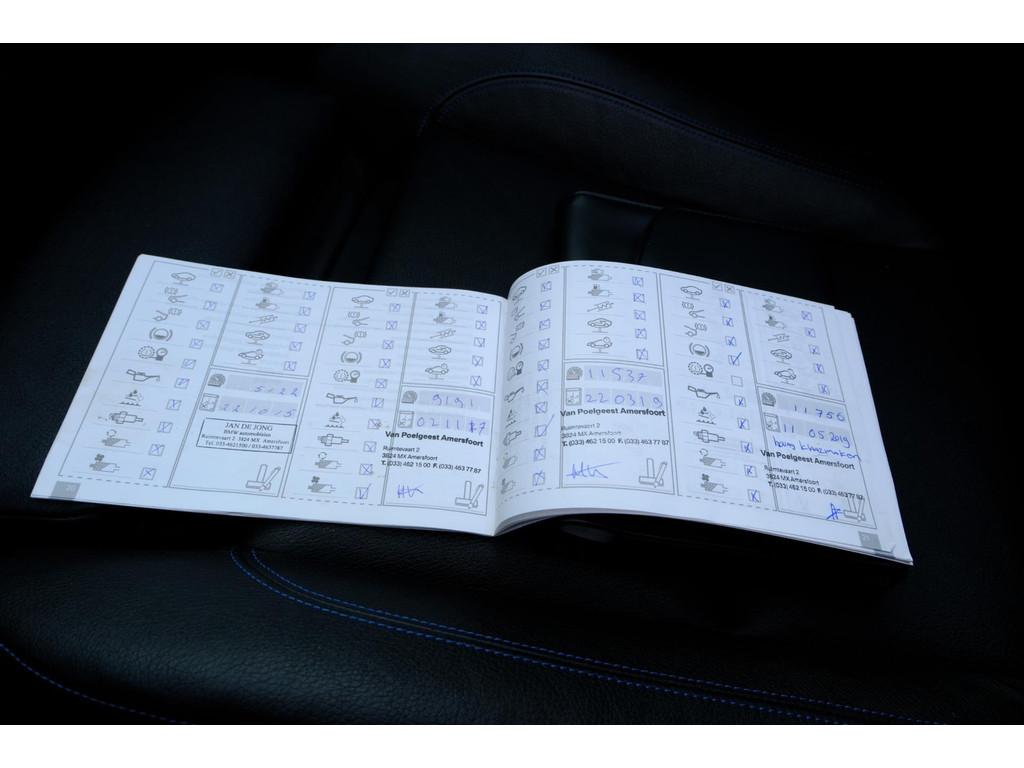 5122
22 10 15
JAN DE JONG
BMW automobielen
Ruimtevaart 2 3824 MX Amersfoort
Tel. 033-4621500 / 033-4637787
9191
02 11 17
Van Poelgeest Amersfoort
Ruimtevaart 2
3824 MX Amersfoort
T. (033) 462 15 00 F. (033) 463 77 87
11537
22 03 19
Van Poelgeest Amersfoort
Ruimtevaart 2
3824 MX Amersfoort
T. (033) 462 15 00 F. (033) 463 77 87
11756
11 05 2019
Van Poelgeest Amersfoort
Ruimtevaart 2
3824 MX Amersfoort
T. (033) 462 15 00 F. (033) 463 77 87